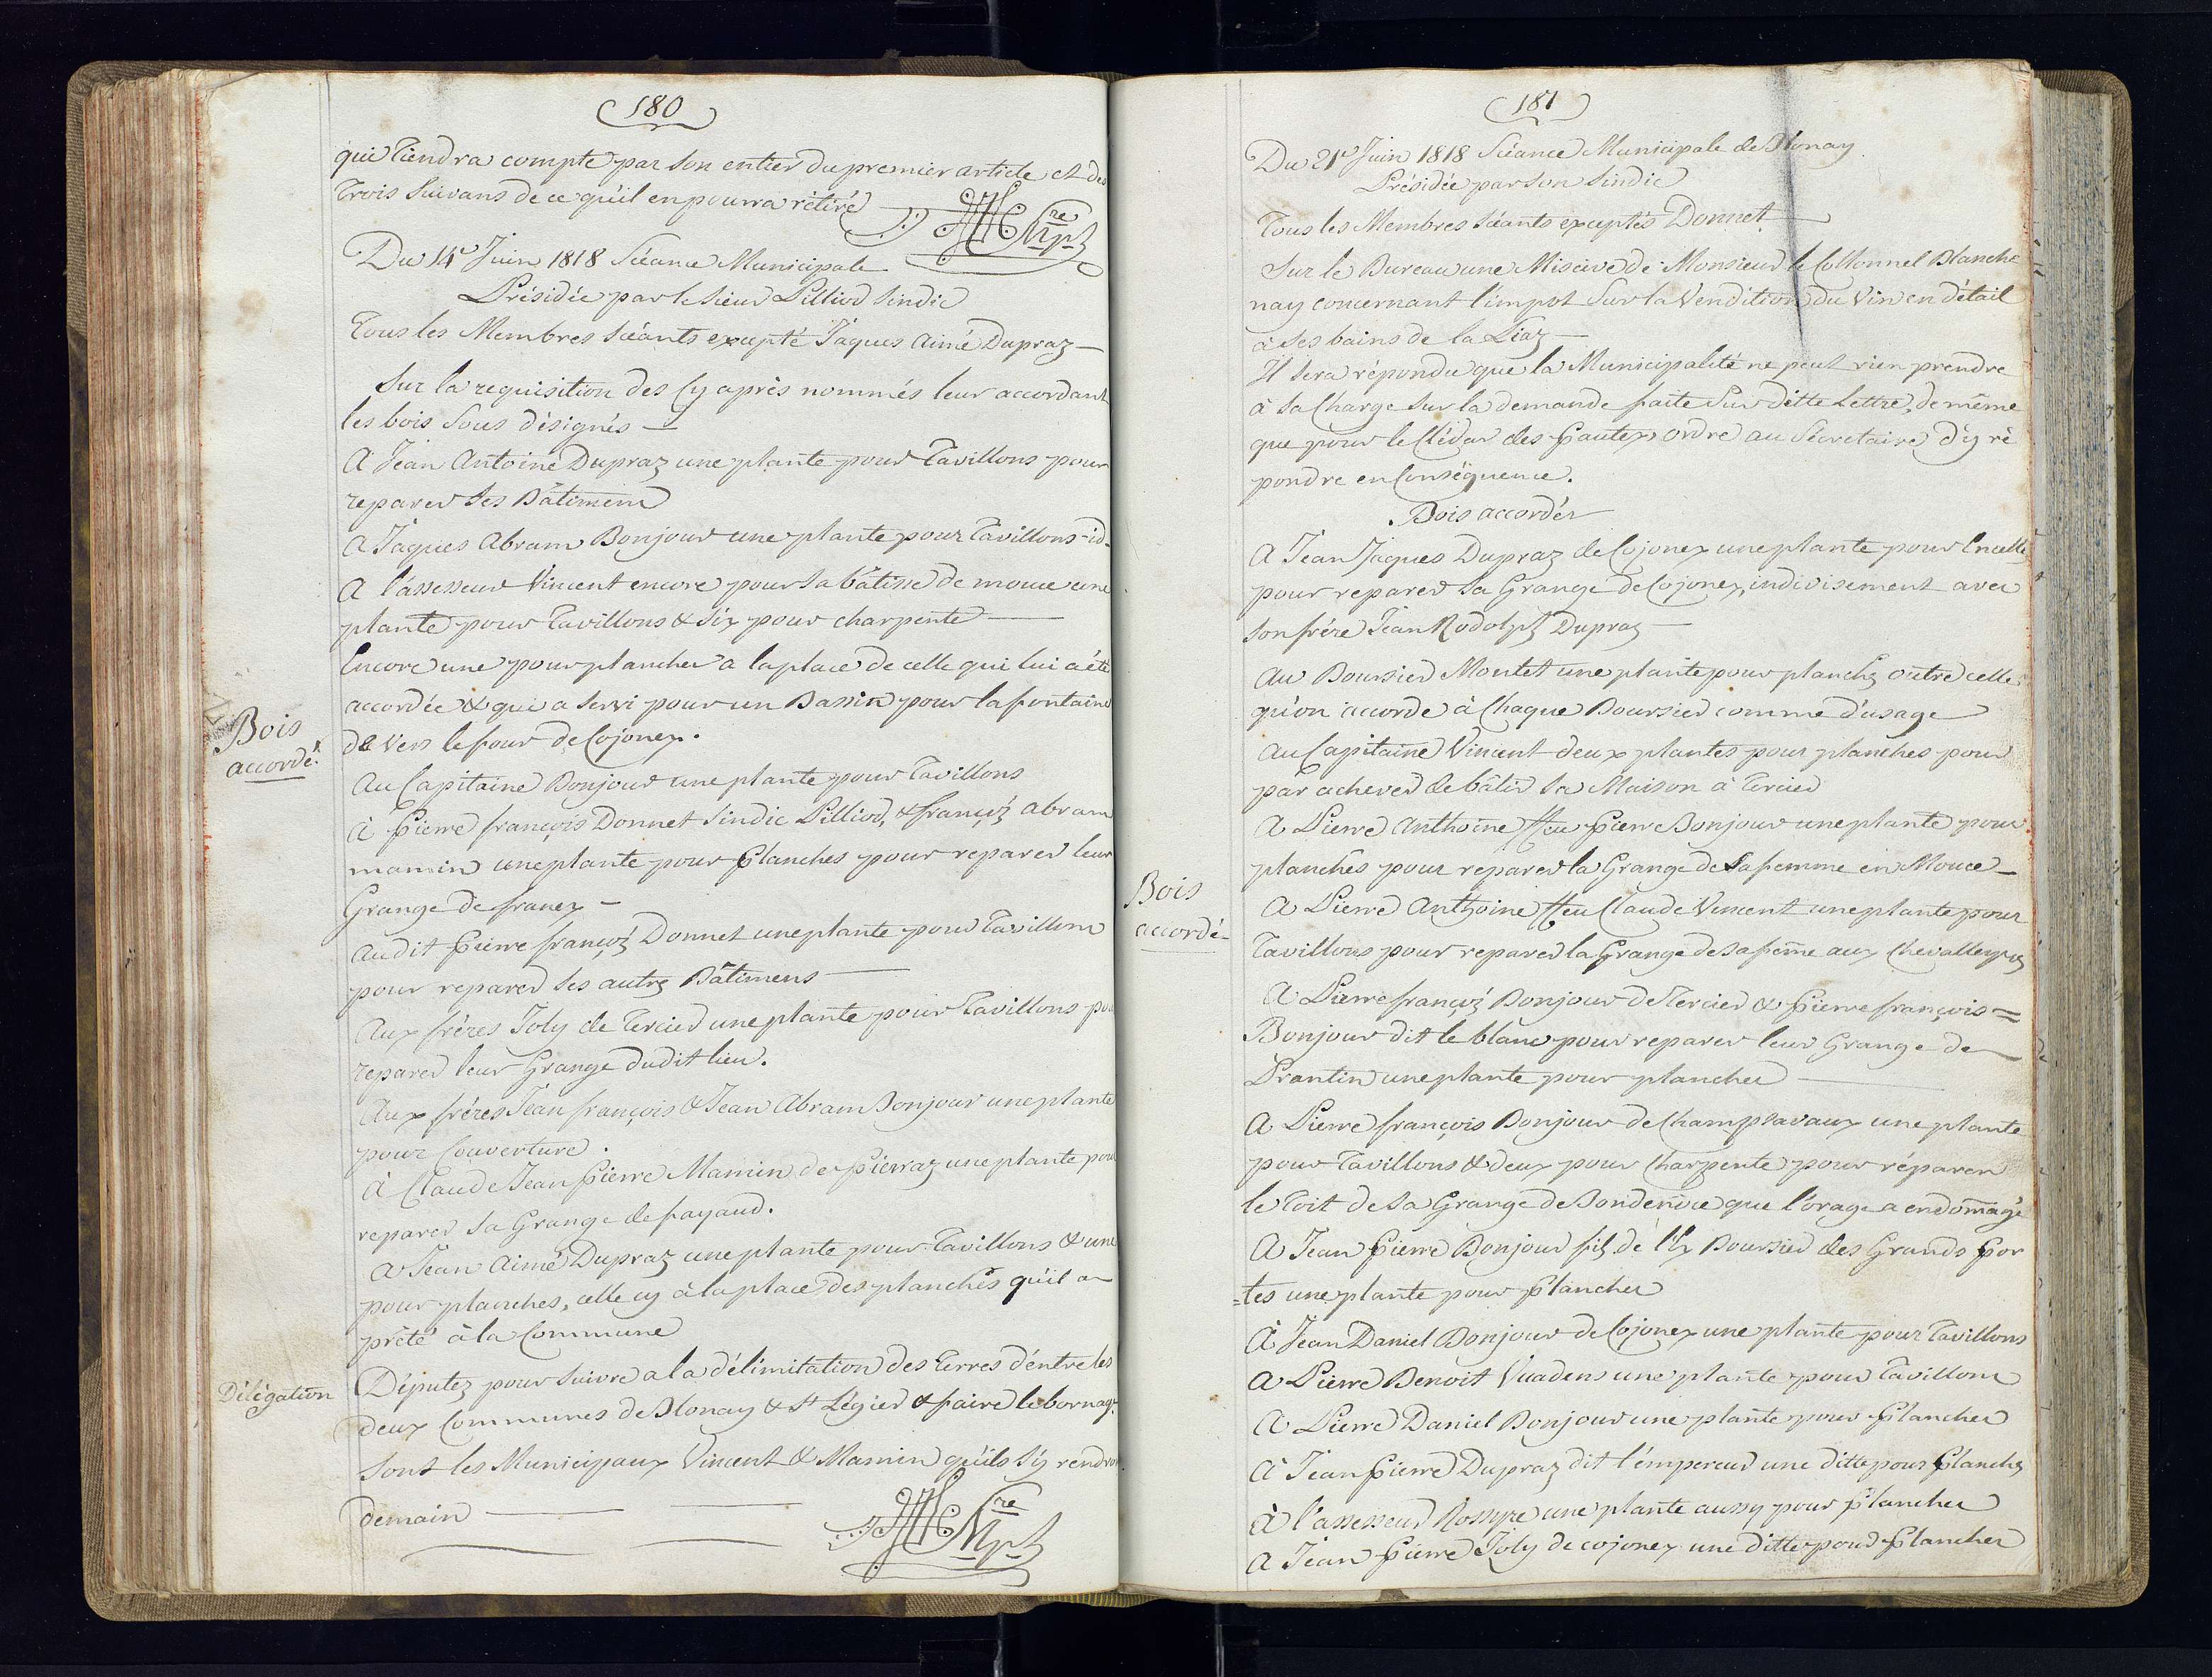 180
qui tiendra compte par son entier du premier article et des
trois suivans de ce qu'il en pourra rétiré
Du 14e Juin 1818 Séance Municipale
Présidée par le Sieur Pilliod Sindic
Tous les Membres séants exepté Jaques Aimé Dupraz
Sur la requisition des Cy après nommés leur accordant
les bois Sous désignés
A Jean Antoine Dupraz une plante pour Tavillons pour
reparer ses Bâtimens
A Jaques Abram Bonjour une plante pour Tavillons id
A l'assesseur Vincent encore pour sa bâtisse de mouce une
plante pour Tavillons & six pour charpente
Encore une pour plancher a la place de celle qui lui a été
accordée & qui a servi pour un Bassin pour la fontaine
de vers le four de Cojonex.
Bois
accordé.
Au Capitaine Bonjour une plante pour Tavillons
à Pierre françois Donnet Sindic Pilliod, & françois Abram
mamin une plante pour Planches pour reparer leur
Grange de franex
Audit Pierre françois Donnet une plante pour Tavillons
pour reparer ses autres Bâtimens
Aux frères Joly de Tercier une plante pour Tavillons pour
reparer leur Grange dudit lieu.
Aux frères Jean françois & Jean Abram Bonjour une plante
pour Couverture.
à Claude Jean Pierre Mamin de Pierraz une plante pour
reparer sa Grange de fayaud.
A Jean Aimé Dupraz une plante pour Tavillons & une
pour planches, celle cy à la place des planches qu'il a
prêté à la Commune
Délégation
Députez pour suivre a la délimitation des Terres d'entre les
deux Communes de Blonay & St Légier & faire le bornage
sont les Municipaux Vincent & Mamin qu'ils s'y rendront
demain
181
Du 21e Juin 1818 Séance Municipale de Blonay
Présidée par son Sindic
Tous les Membres séants exeptés Donnet
Sur le Bureau une Miscive de Monsieur le Collonnel Blanche
nay concernant l'impot Sur la Vendition du Vin en détail
à ses bains de la Liaz
Il sera répondu que la Municipalité ne peut rien prendre
à sa Charge sur la demande faite Sur ditte Lettre, de même
que pour le Clédar des Gautex ordre au Sécretaire d'y ré
pondre en Conséquence.
Bois accordés
A Jean Jaques Dupraz de Cojonex une plante pour Encelle
pour reparer sa Grange de Cojonex, indivisement avec
son frère Jean Rodolph Dupraz
Au Boursier Montet une plante pour planches outre celle
qu'on accorde à Chaque Boursier comme d'usage
Au Capitaine Vincent deux plantes pour planches pour
par achever de bâtir sa Maison à Tercier
A Pierre Anthoine ffeu Pierre Bonjour une plante pour
planches pour reparer la Grange de Sa femme en Mouce
Bois
accordé
A Pierre Anthoine ffeu Claude Vincent une plante pour
Tavillons pour reparer la Grange de sa feme aux Chevalleyres
A Pierre françois Bonjour de Tercier & Pierre françois
Bonjour dit le blanc pour reparer leur Grange de
Prantin une plante pour plancher
A Pierre françois Bonjour de Champsavaux une plante
pour Tavillons & deux pour Charpente pour réparer
le Toit de sa Grange de Bondenoce que l'orage a endomagé
A Jean Pierre Bonjour fils de l'Ex Boursier des Grands Por
tes une plante pour Plancher
A Jean Daniel Bonjour de Cojonex une plante pour Tavillons
A Pierre Benoit Vuadens une plante pour Tavillons
A Pierre Daniel Bonjour une plante pour Plancher
A Jean Pierre Dupraz dit l'émpereur une ditte pour Planches
A l'assesseur Rossyre une plante aussy pour Plancher
A Jean Pierre Joly de cojonex une ditte pour Plancher